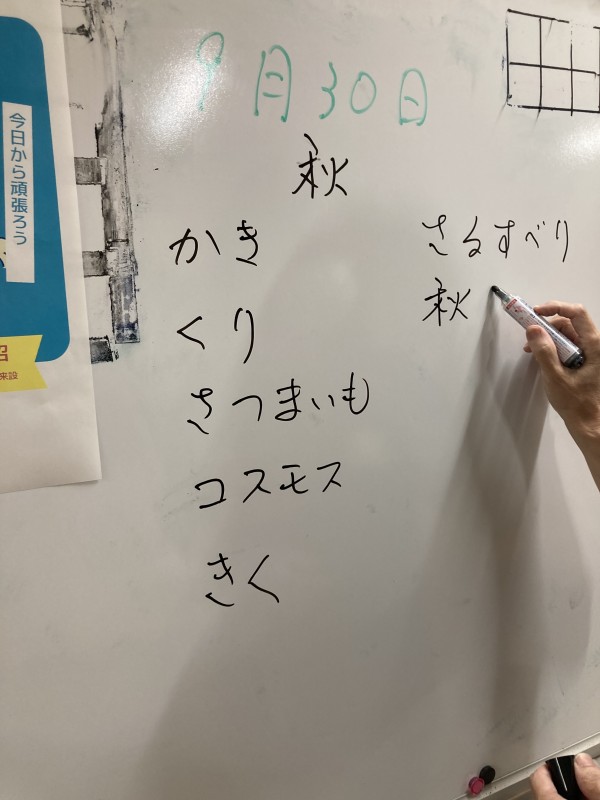 今日から頑張ろう
9月30日
秋
かき
くり
さつまいも
コスモス
きく
さるすべり
秋